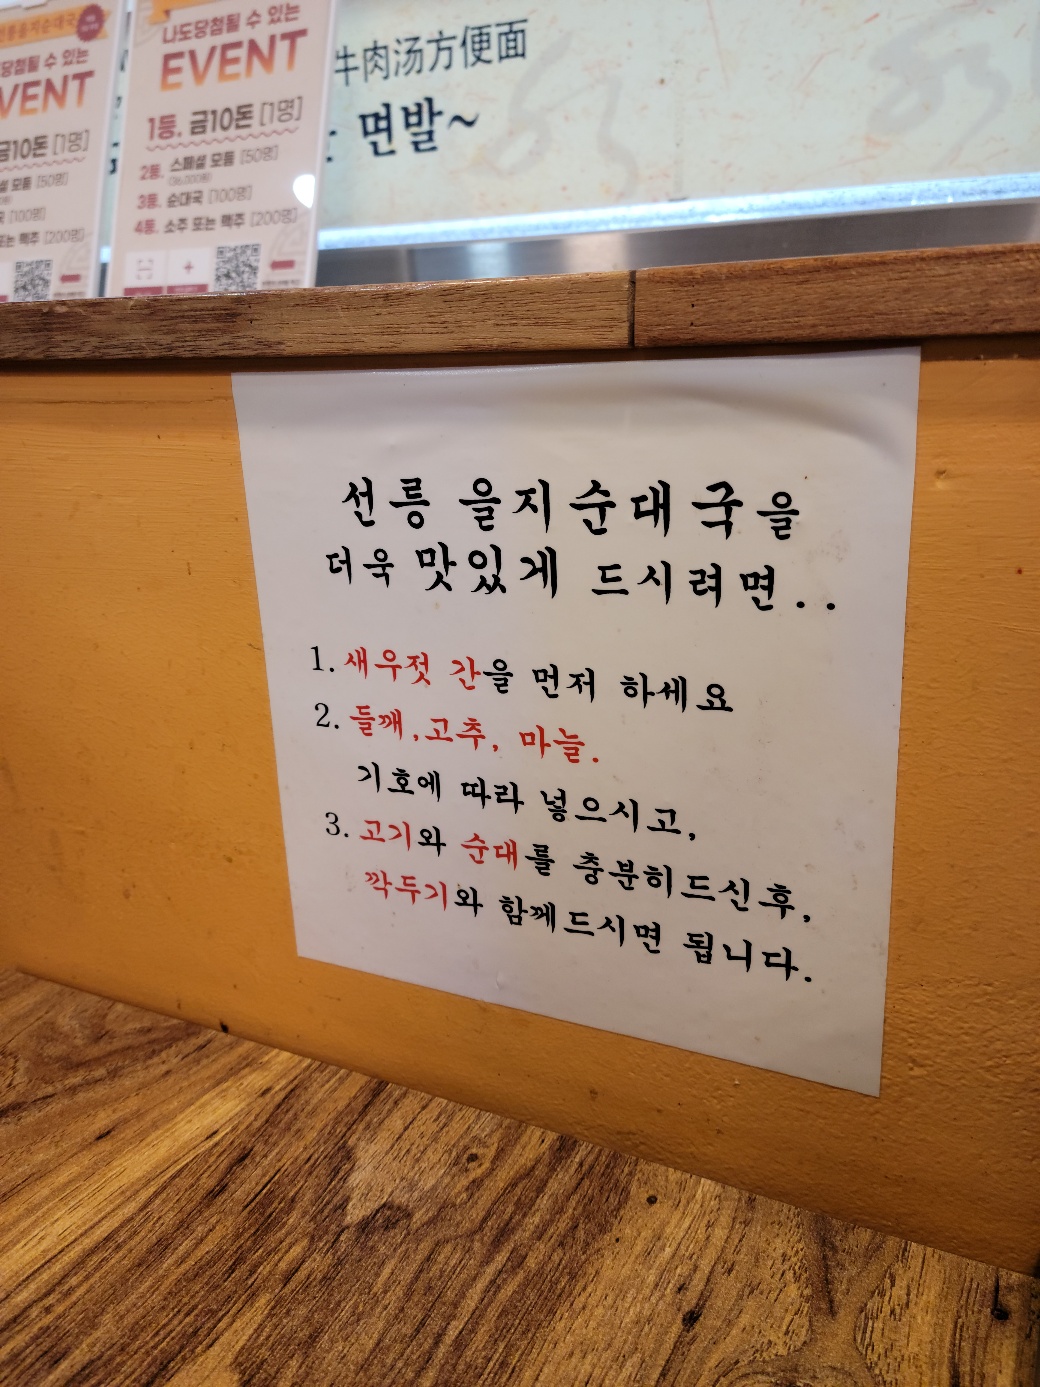 나도당첨될 수 있는
EVENT
1등. 금10돈 [1명]
2등. 스페셜 모듬 [50명]
3등. 순대국 [100명]
4등. 소주 또는 맥주 [200명]
당첨될 수 있는
VENT
금10돈 [1명]
셜 모듬 [50명]
[100명]
또는 맥주 [200명]
牛肉汤方便面
면발~
선릉 을지순대국을
더욱 맛있게 드시려면..
1. 새우젓 간을 먼저 하세요
2. 들깨,고추, 마늘.
기호에 따라 넣으시고,
3. 고기와 순대를 충분히드신후,
깍두기와 함께드시면 됩니다.